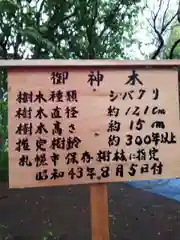 御神木
樹木種類 シバグリ
樹木直径 約121cm
樹木高さ 約15m
推定樹齢 約300年以上
札幌市保存樹林に指定
昭和43年8月5日付